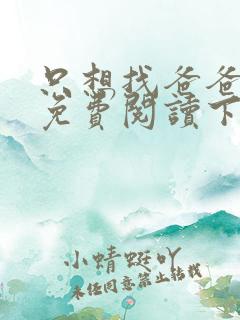 只想找爸爸
免費閱讀下
小蜻蜓吖
未经同意禁止转载